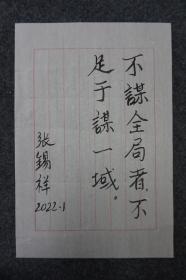 不謀全局者,不
足于謀一域。
张錫祥
2022.1